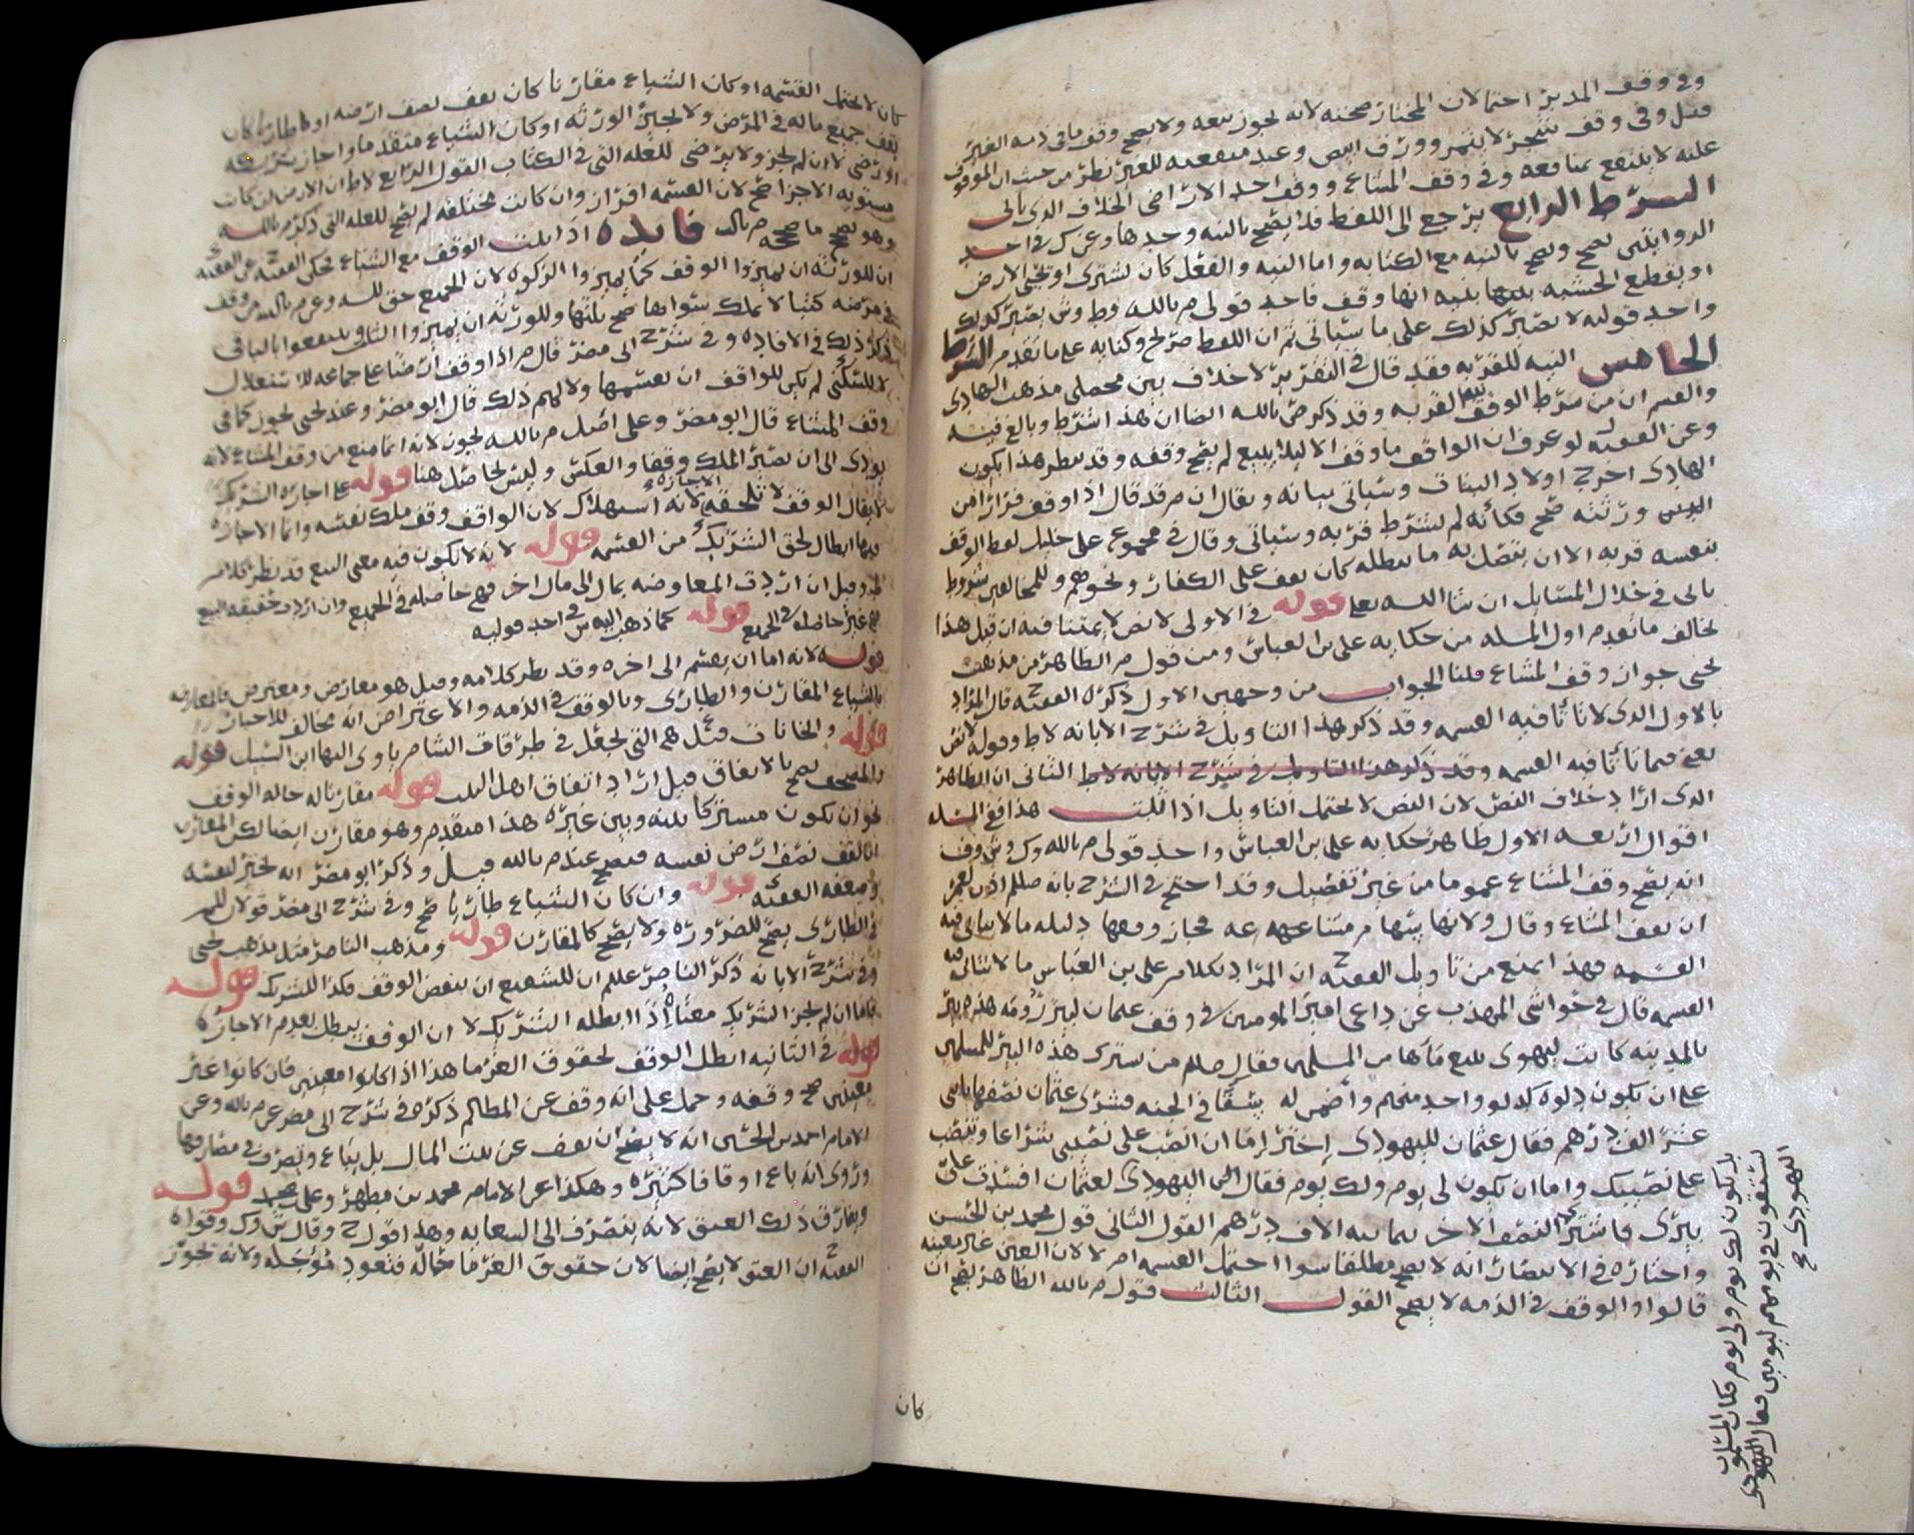 وفي وقف المدبر احتمالان المختار صحته لانه يجوز بيعه ولا يصح وقف ما في ذمه الغير
قيل وفي وقف شجر لا يثمر وورق ابيض وعبد منفعته للغير نظر من حيث ان الموقوف
عليه لا ينتفع بمنافعه وفي وقف المشاع ووقف احد الاراضي الخلاف الذي ياتي
الشرط الرابع يرجع الى اللفظ فلا يصح بالنيه وحدها وعن ك في احد
الروايتين يصح ويصح بالنيه مع الكتابه واما النيه والفعل كان يشتري او يحيي الارض
او يقطع الخشبه بنيه انها وقف فاحد قولي م بالله وط وش يصير كذلك
واحد قوليه لا يصير كذلك على ما سياتي ثم ان اللفظ صريح وكنايه على ما تقدم الشرط
الخامس النيه للقربه فقد قال في التقرير لا خلاف بين محصلي مذهب الهادي
والقسم ان من شرط الوقف نيه القربه وقد ذكر ص بالله ايضا ان هذا شرط وبالغ فيه
وعن الفقيه لو عرف ان الواقف ما وقف الا ليلا يبيع لم يصح وقفه وقد ينظر هذا بكون
الهادي اخرج اولاد البنات وسياتي بيانه ويقال ان م قد قال اذا وقف فرارا من
الدين ورثته صح فكأنه لم يشترط قربه وسياتي وقال في مجموع علي خليل لفظ الوقف
بنفسه قربه الا ان يتصل به ما يبطله كان يقف على الكفار ونحوهم وللمخالفين شروط
ياتي في خلال المسايل ان شا الله تعلى قوله في الاولى لا نص لا يمتنا فيه ان قيل هذا
يخالف ما تقدم اول المسله من حكايه علي بن العباس ومن قول م الظاهر من مذهب
يحيى جواز وقف المشاع قلنا الجواب من وجهين الاول ذكره الفقيه ح قال المراد
بالاول الذي لا تاتا فيه القسمه وقد ذكر هذا التاويل في شرح الابانه لاط وقوله لا نص
يعني فيما تاتا فيه القسمه وقد ذكر هذا التاويل في شرح الابانه لاط الثاني ان الظاهر
الذي اراد خلاف النص لان النص لا يحتمل التاويل اذا ثبت هذا ففي المسله
اقوال اربعه الاول ظاهر حكايه علي بن العباس واحد قولي م بالله وك وش وف
انه يصح وقف المشاع عموما من غير تفصيل وقد احتج في الشرح بانه صللم اذن لعمر
ان يقف المشاع وقال ولانها بينها م مشاعه فجاز وقفها دليله ما لا يتاتى فيه
القسمه فهذا يمنع من تاويل الفقيه ح ان المراد بكلام علي بن العباس ما لا تتاتى فيه
القسمه قال في حواشي المهذب عن داعي امير المومنين في وقف عثمان لبير رومه هذه بير
بالمدينه كانت ليهودي يبيع ماها من المسلمين فقال صللم من يشتري هذه البير للمسلمين
على ان يكون دلوه كدلو واحد منهم واضمن له شقا في الجنه فشرى عثمان نصفها باثنى
عشر الف درهم فقال عثمان لليهودي اختر اما ان انصب على نصيبي شراعا وتنصب
على نصيبك واما ان يكون لي يوم ولك يوم فقال اليهودي لعثمان افسدت علي
بيري فاشتر النصف الاخر بثمانيه الاف درهم القول الثاني قول محمد بن الحسن
واختاره في الانتصار انه لا يصح مطلقا سوا احتمل القسمه ام لا لان العين غير معينه
قالوا والوقف في الذمه لا يصح القول الثالث قول م بالله الظاهر يصح ان
بل يكون لك يوم ولي يوم فكان المسلمون
يستقون في يومهم ليومين فقال اليهودي
كان
كان لا يحتمل القسمه او كان الشياع مقارنا كان يقف نصف ارضه او كان طاريا كان
يقف جميع ماله في المرض ولا يجيز الورثه او كان الشياع متقدما واجاز شريكه
او رضي لا ان لم يجز ولا يرضى للعله التي في الكتاب القول الرابع لاط ان الارض ان كانت
مستويه الاجزا صح لان القسمه افراز وان كانت مختلفه لم يصح للعله التي ذكر م بالله
وهو يصح ما صححه م بالله فايده اذا ثبت الوقف مع الشياع فحكى الفقيه ح عن الفقيه
ان للورثه ان يميزوا الوقف كما يميزوا الزكوه لان الجميع حق لله وعن م بالله من وقف
في مرضه كتبا لا يملك سواها صح ثلثها وللورثه ان يميزوا الثلث وينتفعوا بالباقي
ذكر ذلك في الافاده وفي شرح ابي مضر قال م اذا وقف ارضا على جماعه للاستغلال
لا للسكنى لم يكن للواقف ان يقسمها ولا لهم ذلك قال ابو مضر وعند يحيى يجوز كما في
وقف المشاع قال ابو مضر وعلى اصل م بالله يجوز لانه انما منع من وقف المشاع لانه
يودي الى ان يصير الملك وقفا والعكس وليس بحاصل هنا قوله على اجازه الشريك
لا يقال الوقف لا تلحقه الاجازه لانه استهلاك لان الواقف وقف ملك نفسه وانما الاجازه
فيها ابطال لحق الشريك من القسمه قوله لانه لا يكون فيه معنى البيع قد نظر كلام
الم وقيل ان اردت المعاوضه بمال الى مال اخر فهي حاصله في الجميع وان اردت حقيقه البيع
فهي غير حاصله في الجميع قوله كما ذهب اليه ش في احد قوليه
قوله لانه اما ان يقسم الى اخره وقد نظر كلامه وقيل هو معارض ومعترض فالمعارضه
بالشياع المقارن والطاري وبالوقف في الذمه والاعتراض انه مخالف للاخبار
قوله والخانات قيل هي التي تجعل في طرقات الشام ياوي اليها ابن السبيل قوله
والمسجد يصح بالاتفاق قيل اراد اتفاق اهل البيت قوله مقارنا له حاله الوقف
نحو ان يكون مشتركا بينه وبين غيره هذا متقدم وهو مقارن ايضا لكن المقارن
ان يقف نصف ارض نفسه فيصح عند م بالله قيل وذكر ابو مضر انه يجبر لنفسه
وضعفه الفقيه قوله وان كان الشياع طاريا صح وفي شرح ابي مضر قولان للم
في الطاري يصح للضروره ولا يصح كالمقارن قوله ومذهب الناصر مثل مذهب يحيى
وفي شرح الابانه ذكر الناصر عللم ان للشفيع ان ينقض الوقف فكذا للشريك قوله
فاما ان لم يجز الشريك معناه اذا ابطله الشريك لا ان الوقف يبطل بعدم الاجازه
قوله في الثانيه ابطل الوقف لحقوق الغرما هذا اذا كانوا معينين فان كانوا غير
معينين صح وقفه وحمل على انه وقف عن المظالم ذكره في شرح ابي مضر عن م بالله وعن
الامام احمد بن الحسين انه لا يصح ان يقف عن بيت المال بل يباع ويصرف في مصارفها
وروى انه باع اوقافا كثيره وهكذا عن الامام محمد بن مطهر وعلي بحيد قوله
ويفارق ذلك العتق لانه يتصرف الى السعايه وهذا قول ح وقال ش وك وقواه
الفقيه ح ان العتق لا يصح ايضا لان حقوق الغرما حاله فتعود مؤجله ولانه تجوز